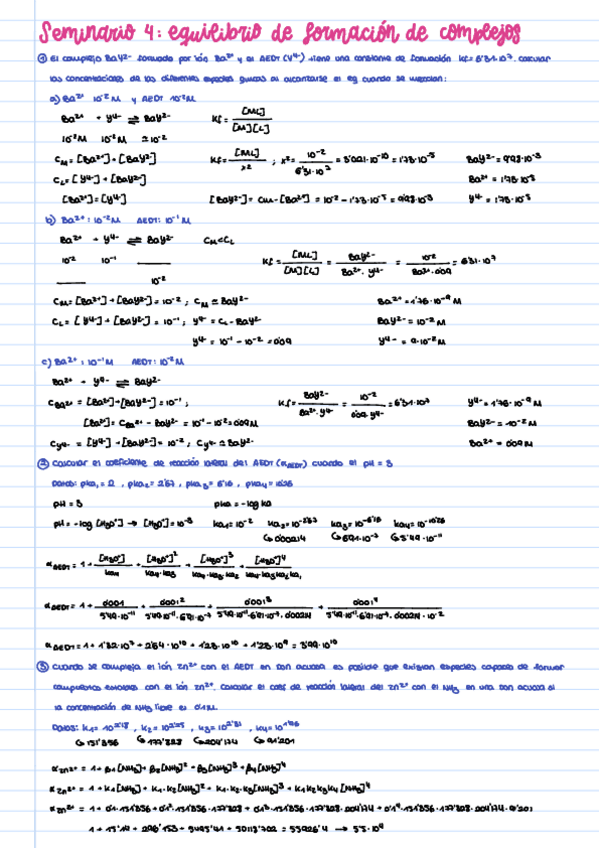 Seminario 4: equilibrio de formación de complejos
① El complejo BaY²⁻ formado por ión Ba²⁺ y el AEDT (Y⁴⁻) tiene una constante de formación Kf = 6'31·10⁷. Calcular
las concentraciones de las diferentes especies químicas al alcanzarse el eq cuando se mezclan:
a) Ba²⁺ 10⁻²M y AEDT 10⁻²M
Ba²⁺ + Y⁴⁻ ⇌ BaY²⁻ Kf = [ML] / [M][L]
10⁻²M 10⁻²M ≃10⁻²
CM = [Ba²⁺] + [BaY²⁻] Kf = [ML] / x² ; x² = 10⁻² / 6'31·10⁷ = = 1'78·10⁻⁵ BaY²⁻ = 9'98·10⁻³
CL = [Y⁴⁻] + [BaY²⁻] Ba²⁺ =
[Ba²⁺] = [Y⁴⁻] [BaY²⁻] = CM - [Ba²⁺] = 10⁻² - = 9'98·10⁻³ Y⁴⁻ =
b) Ba²⁺: 10⁻²M AEDT: 10⁻¹M
Ba²⁺ + Y⁴⁻ ⇌ BaY²⁻ CM < CL
10⁻² 10⁻¹ ____ Kf = [ML] / [M][L] = BaY²⁻ / Ba²⁺·Y⁴⁻ = 10⁻² / Ba²⁺·0'09 = 6'31·10⁷
____ 10⁻²
CM = [Ba²⁺] + [BaY²⁻] = 10⁻² ; CM ≃ BaY²⁻ Ba²⁺ = 1'76·10⁻⁹ M
CL = [Y⁴⁻] + [BaY²⁻] = 10⁻¹ ; Y⁴⁻ = CL - BaY²⁻ BaY²⁻ = 10⁻² M
Y⁴⁻ = 10⁻¹ - 10⁻² = 0'09 Y⁴⁻ = 9·10⁻² M
c) Ba²⁺: 10⁻¹M AEDT: 10⁻²M
Ba²⁺ + Y⁴⁻ ⇌ BaY²⁻
CBa²⁺ = [Ba²⁺] + [BaY²⁻] = 10⁻¹ ; Kf = BaY²⁻ / Ba²⁺·Y⁴⁻ = 10⁻² / 0'09·Y⁴⁻ = 6'31·10⁷ Y⁴⁻ = 1'76·10⁻⁹ M
[Ba²⁺] = CBa²⁺ - BaY²⁻ = 10⁻¹ - 10⁻² = 0'09M BaY²⁻ = 10⁻² M
CY⁴⁻ = [Y⁴⁻] + [BaY²⁻] = 10⁻² ; CY⁴⁻ ≃ BaY²⁻ Ba²⁺ = 0'09 M
② Calcular el coeficiente de reacción lateral del AEDT (αAEDT) cuando el pH = 3
Datos: pka₁ = 2 , pka₂ = 2'67 , pka₃ = 6'16 , pka₄ = 10'26
pH = 3 pka = -log ka
pH = -log [H₃O⁺] → [H₃O⁺] = 10⁻³ ka₁ = 10⁻² ka₂ = 10⁻²'⁶⁷ ka₃ = 10⁻⁶'¹⁶ ka₄ = 10⁻¹⁰'²⁶
↳0'00214 ↳6'91·10⁻⁷ ↳5'49·10⁻¹¹
αAEDT = 1 + [H₃O⁺] / ka₄ + [H₃O⁺]² / ka₄·ka₃ + [H₃O⁺]³ / ka₄·ka₃·ka₂ + [H₃O⁺]⁴ / ka₄·ka₃·ka₂·ka₁
αAEDT = 1 + 0'001 / 5'49·10⁻¹¹ + 0'001² / 5'49·10⁻¹¹·6'91·10⁻⁷ + 0'001³ / 5'49·10⁻¹¹·6'91·10⁻⁷·0'00214 + 0'001⁴ / 5'49·10⁻¹¹·6'91·10⁻⁷·0'00214·10⁻²
αAEDT = 1 + 1'82·10⁷ + 2'64·10¹⁰ + 1'23·10¹⁰ + 1'23·10⁹ = 3'99·10¹⁰
③ Cuando se compleja el ión Zn²⁺ con el AEDT en acuosa es posible que existan especies capaces de formar
compuestos estables con el ión Zn²⁺. Calcular el coef de reacción lateral del Zn²⁺ con el NH₃ en una acuosa si
la concentración de NH₃ libre es 0'1M.
Datos: K₁ = 10²'¹⁸ , K₂ = 10²'²⁵ , K₃ = 10²'³¹ , K₄ = 10¹'⁹⁶
↳151'356 ↳177'828 ↳204'174 ↳91'201
αZn²⁺ = 1 + β₁[NH₃] + β₂[NH₃]² + β₃[NH₃]³ + β₄[NH₃]⁴
αZn²⁺ = 1 + K₁[NH₃] + K₁·K₂[NH₃]² + K₁·K₂·K₃[NH₃]³ + K₁K₂K₃K₄[NH₃]⁴
αZn²⁺ = 1 + 0'1·151'356 + 0'1²·151'356·177'828 + 0'1³·151'356·177'828·204'174 + 0'1⁴·151'356·177'828·204'174·91'201